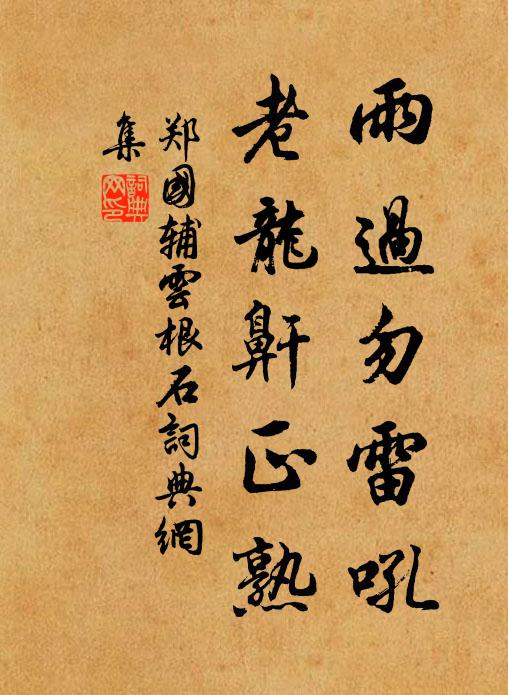 雨過勿雷吼
老龍鼾正熟
郑國辅雲根石詞典網
集
詞典网印